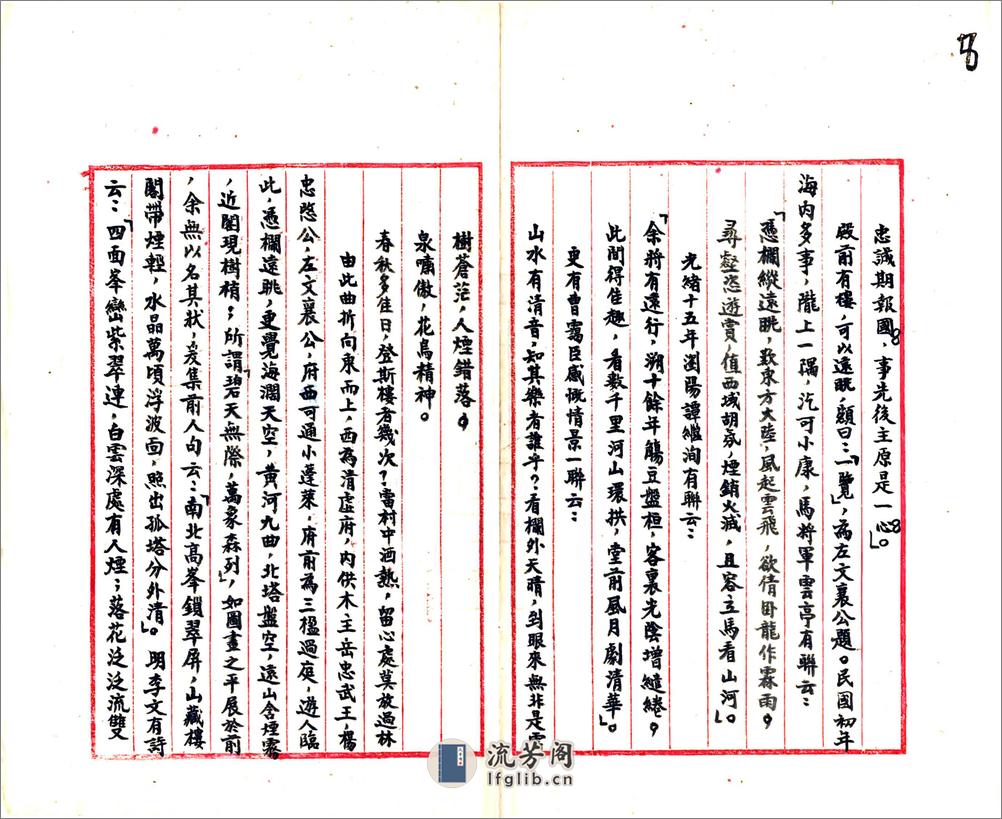 忠誠期報國，事先後主原是一心」。
殿前有樓，可以遠眺，顏曰：「一覽」，為左文襄公題。民國初年
海內多事，隴上一隅，汔可小康，馬將軍雲亭有聯云：
「憑欄縱遠眺，歎東方大陸，風起雲飛，欲倩臥龍作霖雨，
尋壑恣遊賞，值西域胡氛，煙銷火滅，且容立馬看山河」。
光緒十五年瀏陽譚繼洵有聯云：
「余將有遠行，溯十餘年觴豆盤桓，客裏光陰增繾綣，
此間得佳趣，看數千里河山環拱，堂前風月劇清華」。
更有曹靄臣感慨情景一聯云：
山水有清音，知其樂者誰乎？看欄外天晴，到眼來無非是雲
樹蒼茫，人煙錯落，
泉嘯傲，花鳥精神。
春秋多佳日，登斯樓者幾次？當村中酒熟，留心處莫放過林
由此曲折向東而上，西為清虛府，內供木王岳忠武王，楊
忠愍公，左文襄公，府西可通小蓬萊，府前為三楹過庭，遊人臨
此，憑欄遠眺，更覺海濶天空，黃河九曲，北塔盤空，遠山含煙霧
，近閣現樹梢；所謂「碧天無際，萬象森列」，如圖畫之平展於前
，余無以名其狀，爰集前人句云：「南北高峯鎖翠屏，山藏樓
閣帶煙輕，水晶萬頃浮波面，照出孤塔分外清」。明李文有詩
云：「四面峯巒紫翠連，白雲深處有人煙；落花泛泛流雙
流芳阁
lfglib.cn